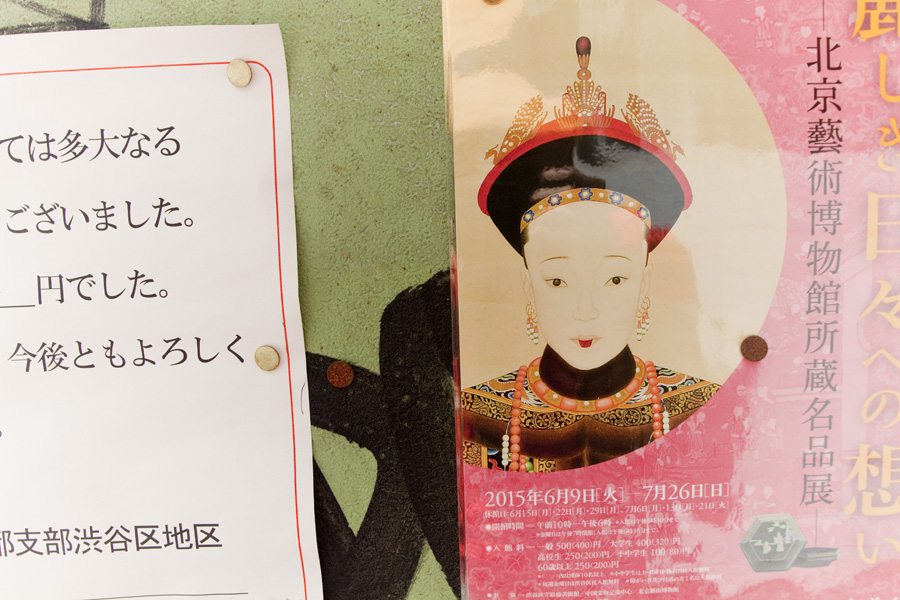 ては多大なる
ございました。
円でした。
今後ともよろしく
。
部支部渋谷区地区
麗しき日々への想い
北京藝術博物館所蔵名品展
2015年6月9日[火]―7月26日[日]
休館日:6月15日[月]・22日[月]・29日[月]、7月6日[月]・13日[月]・21日[火]
●開館時間―午前10時―午後6時
●入館料―一般 500(400)円／大学生 400(320)円
高校生 250(200)円／小中学生 100(80)円
60歳以上 250(200)円